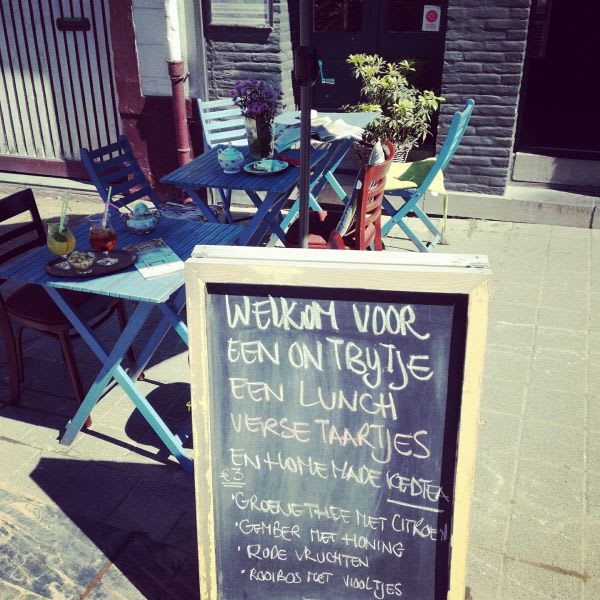 WELKOM VOOR
EEN ONTBYTJE
EEN LUNCH
VERSE TAARTJES
EN HOMEMADE ICEDTEA
€3
• GROENE THEE MET CITROEN
• GEMBER MET HONING
• RODE VRUCHTEN
• ROOIBOS MET VIOOLTJES